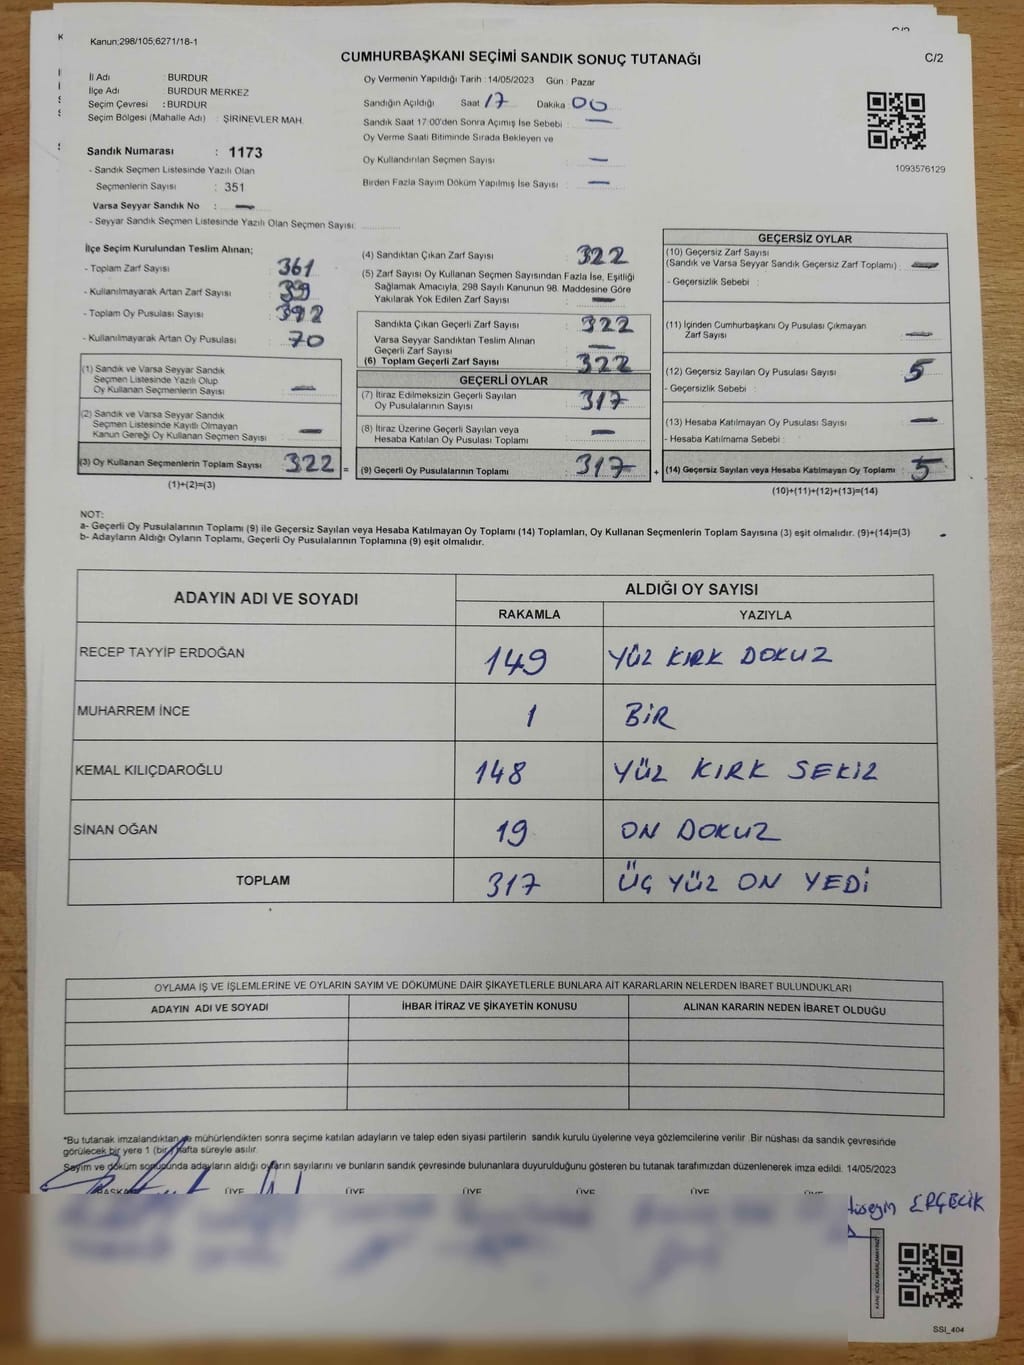 Kanun:298/105;6271/18-1
C/2
CUMHURBAŞKANI SEÇİMİ SANDIK SONUÇ TUTANAĞI
İl Adı : BURDUR
İlçe Adı : BURDUR MERKEZ
Seçim Çevresi : BURDUR
Seçim Bölgesi (Mahalle Adı) : ŞİRİNEVLER MAH.
Sandık Numarası : 1173
- Sandık Seçmen Listesinde Yazılı Olan
Seçmenlerin Sayısı : 351
Varsa Seyyar Sandık No : —
- Seyyar Sandık Seçmen Listesinde Yazılı Olan Seçmen Sayısı:
Oy Vermenin Yapıldığı Tarih : 14/05/2023 Gün : Pazar
Sandığın Açıldığı Saat 17 Dakika 00
Sandık Saat 17:00'den Sonra Açımış İse Sebebi : —
Oy Verme Saati Bitiminde Sırada Bekleyen ve
Oy Kullandırılan Seçmen Sayısı : —
Birden Fazla Sayım Döküm Yapılmış İse Sayısı : —
1093576129
İlçe Seçim Kurulundan Teslim Alınan;
- Toplam Zarf Sayısı : 361
- Kullanılmayarak Artan Zarf Sayısı : 39
- Toplam Oy Pusulası Sayısı : 392
- Kullanılmayarak Artan Oy Pusulası : 70
(1) Sandık ve Varsa Seyyar Sandık
Seçmen Listesinde Yazılı Olup
Oy Kullanan Seçmenlerin Sayısı : —
(2) Sandık ve Varsa Seyyar Sandık
Seçmen Listesinde Kayıtlı Olmayan
Kanun Gereği Oy Kullanan Seçmen Sayısı : —
(3) Oy Kullanan Seçmenlerin Toplam Sayısı : 322 =
(1)+(2)=(3)
(4) Sandıktan Çıkan Zarf Sayısı : 322
(5) Zarf Sayısı Oy Kullanan Seçmen Sayısından Fazla İse, Eşitliği
Sağlamak Amacıyla, 298 Sayılı Kanunun 98. Maddesine Göre
Yakılarak Yok Edilen Zarf Sayısı : —
Sandıkta Çıkan Geçerli Zarf Sayısı : 322
Varsa Seyyar Sandıktan Teslim Alınan
Geçerli Zarf Sayısı : —
(6) Toplam Geçerli Zarf Sayısı : 322
GEÇERLİ OYLAR
(7) İtiraz Edilmeksizin Geçerli Sayılan
Oy Pusulalarının Sayısı : 317
(8) İtiraz Üzerine Geçerli Sayılan veya
Hesaba Katılan Oy Pusulası Toplamı : —
(9) Geçerli Oy Pusulalarının Toplamı : 317 +
GEÇERSİZ OYLAR
(10) Geçersiz Zarf Sayısı
(Sandık ve Varsa Seyyar Sandık Geçersiz Zarf Toplamı) : —
- Geçersizlik Sebebi :
(11) İçinden Cumhurbaşkanı Oy Pusulası Çıkmayan
Zarf Sayısı : —
(12) Geçersiz Sayılan Oy Pusulası Sayısı : 5
- Geçersizlik Sebebi :
(13) Hesaba Katılmayan Oy Pusulası Sayısı : —
- Hesaba Katılmama Sebebi :
(14) Geçersiz Sayılan veya Hesaba Katılmayan Oy Toplamı : 5
(10)+(11)+(12)+(13)=(14)
NOT:
a- Geçerli Oy Pusulalarının Toplamı (9) ile Geçersiz Sayılan veya Hesaba Katılmayan Oy Toplamı (14) Toplamları, Oy Kullanan Seçmenlerin Toplam Sayısına (3) eşit olmalıdır. (9)+(14)=(3)
b- Adayların Aldığı Oyların Toplamı, Geçerli Oy Pusulalarının Toplamına (9) eşit olmalıdır.
ADAYIN ADI VE SOYADI
ALDIĞI OY SAYISI
RAKAMLA YAZIYLA
RECEP TAYYİP ERDOĞAN 149 YÜZ KIRK DOKUZ
MUHARREM İNCE 1 BİR
KEMAL KILIÇDAROĞLU 148 YÜZ KIRK SEKİZ
SİNAN OĞAN 19 ON DOKUZ
TOPLAM 317 ÜÇ YÜZ ON YEDİ
OYLAMA İŞ VE İŞLEMLERİNE VE OYLARIN SAYIM VE DÖKÜMÜNE DAİR ŞİKAYETLERLE BUNLARA AİT KARARLARIN NELERDEN İBARET BULUNDUKLARI
ADAYIN ADI VE SOYADI İHBAR İTİRAZ VE ŞİKAYETİN KONUSU ALINAN KARARIN NEDEN İBARET OLDUĞU
*Bu tutanak imzalandıktan ve mühürlendikten sonra seçime katılan adayların ve talep eden siyasi partilerin sandık kurulu üyelerine veya gözlemcilerine verilir. Bir nüshası da sandık çevresinde
görülecek bir yere 1 (bir) hafta süreyle asılır.
Sayım ve döküm sonucunda adayların aldığı oyların sayılarını ve bunların sandık çevresinde bulunanlara duyurulduğunu gösteren bu tutanak tarafımızdan düzenlenerek imza edildi. 14/05/2023
BAŞKAN ÜYE ÜYE ÜYE ÜYE ÜYE ÜYE
Hüseyin ERÇELİK
SSİ_404